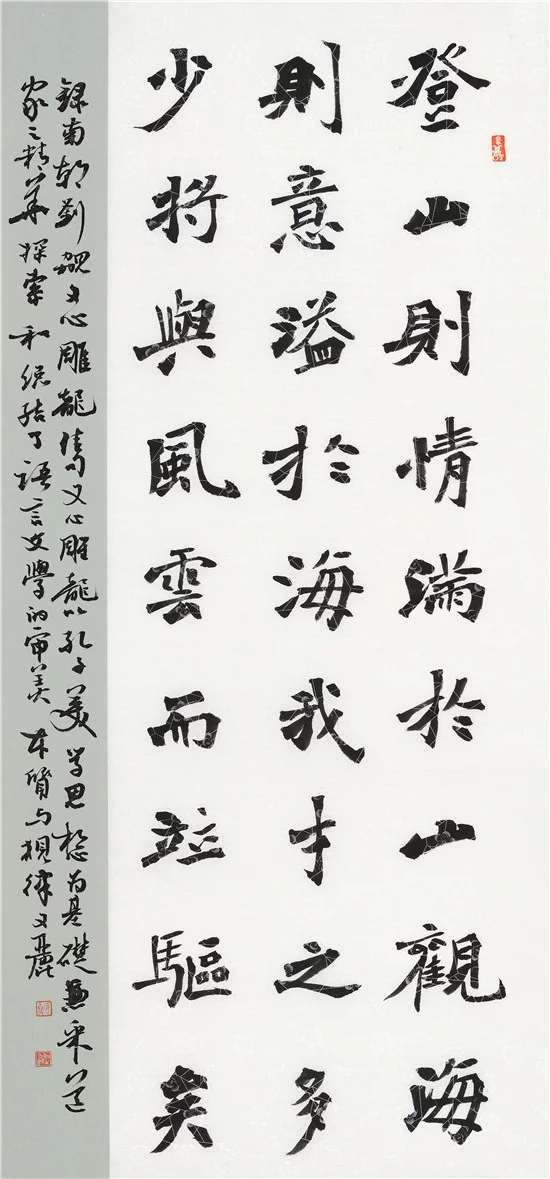 登山則情滿於山觀海
則意溢於海我才之多
少將與風雲而竝驅矣
錄南朝劉勰文心雕龍雋文心雕龍以孔子美學思想為基礎兼采道
家之精華探索和總結了語言文學的审美本質与規律文麗